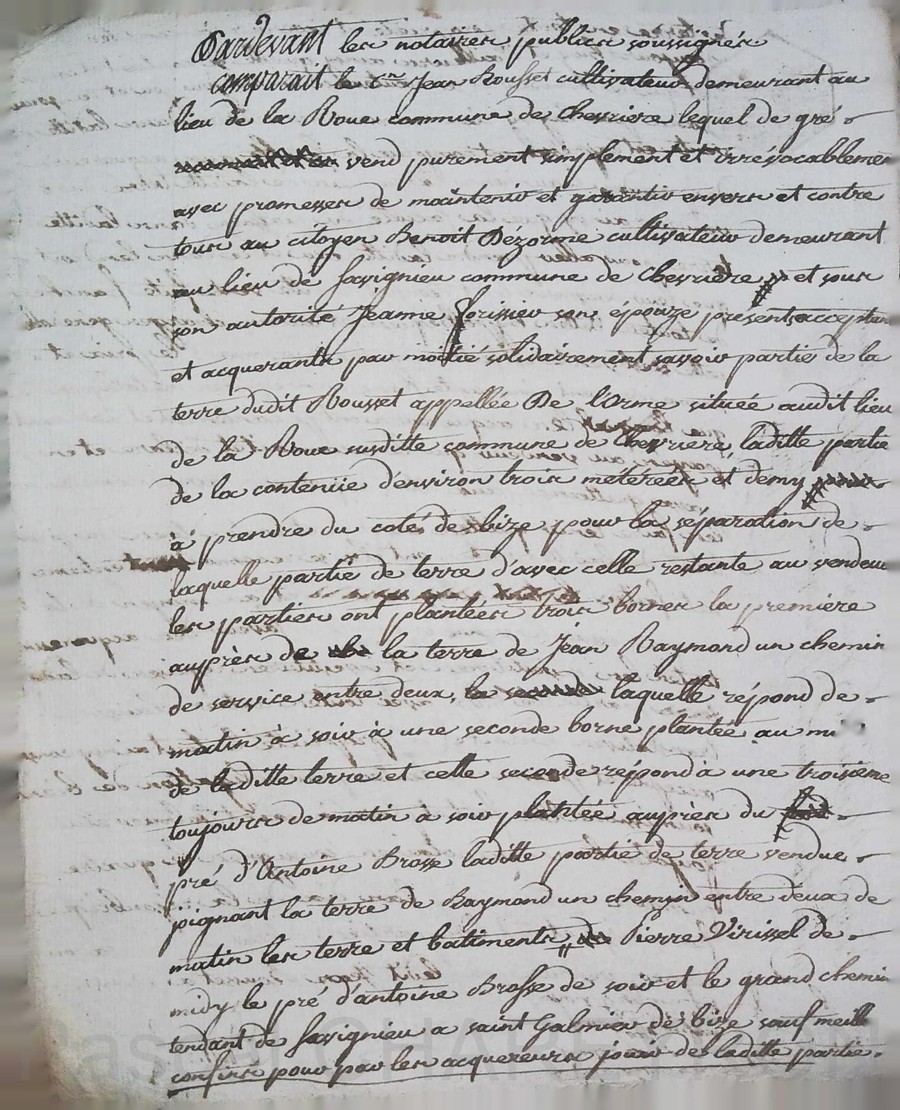 Pardevant les notaires publics soussignés
comparait le Cen Jean Rousset cultivateur demeurant au
lieu de la Roue commune de chevriere lequel de gré
vend purement simplement et irrévocablemen
avec promesses de maintenir et garentir envers et contre
tous au citoyen Benoit Dézorme cultivateur demeurant
au lieu de Savignieu commune de Chevriere et sous
son autorité Jeanne son épouze présents acceptan
et acquerants par moitié solidairement savoir partie de la
terre dudit Rousset appellée De l'orme située audit lieu
de la Roue susditte commune de Chevriere, laditte partie
de la contenüe d'environ trois méterées et demy
à prendre du coté de bize pour la séparation de
laquelle partie de terre d'avec celle restante au vendeur
les parties ont plantées trois bornes la premiere
auprès de la terre de Jean Raymond un chemin
de service entre deux, laquelle répond de
matin à soir à une seconde borne plantée au mi
de laditte terre et celle seconde répond à une troisieme
toujours de matin à soir plantée auprès du
pré d'Antoine Brosse laditte partie de terre vendue
joignant la terre de Raymond un chemin entre deux de
matin les terre et batiments de Pierre Virissel de
midy le pré d'antoine Brosse de soir et le grand chemin
tendant de Savignieu a saint Galmier de bize sauf meill
confins pour par les acquereurs jouir de laditte partie